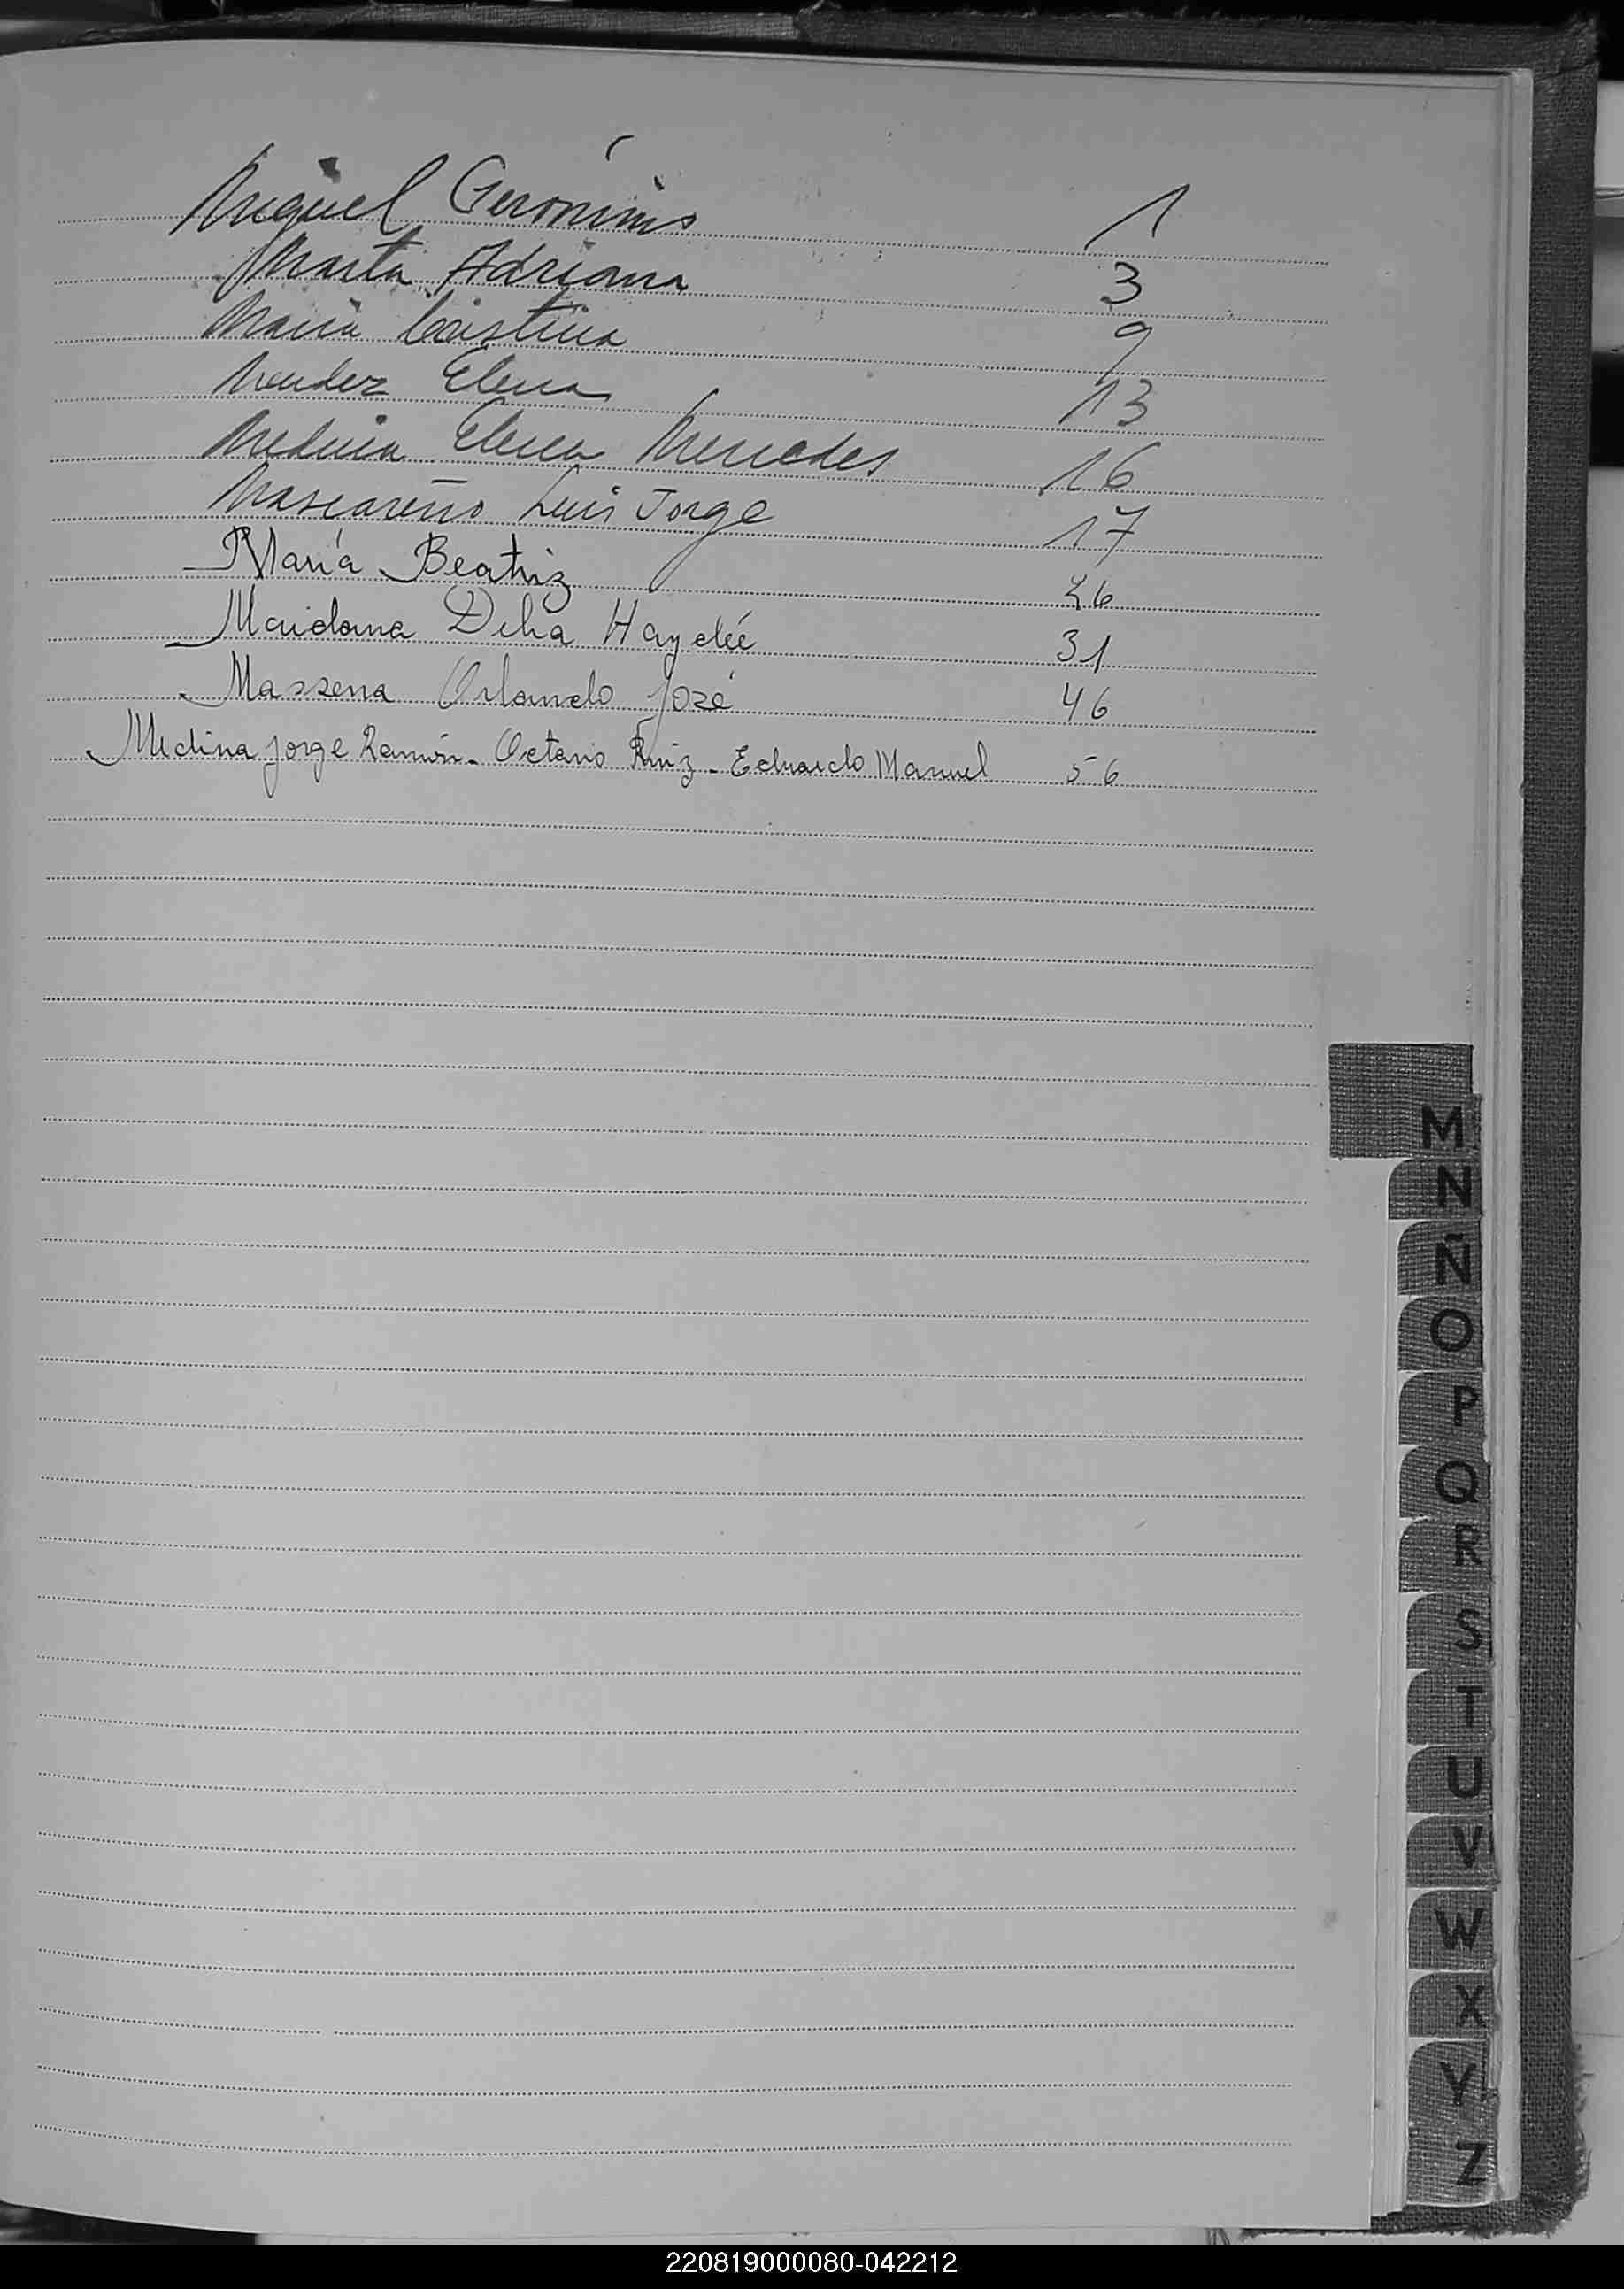 Miguel Gerónimo 1
Marta Adriana 3
María Cristina 9
Mendez Elena 13
Medina Elena Mercedes 16
Mascareño Luis Jorge 17
María Beatriz 26
Maidana Delia Haydée 31
Massena Orlando José 46
Medina Jorge Ramón - Octavio Ruiz - Eduardo Manuel 56
M
N
Ñ
O
P
Q
R
S
T
U
V
W
X
Y
Z
220819000080-042212